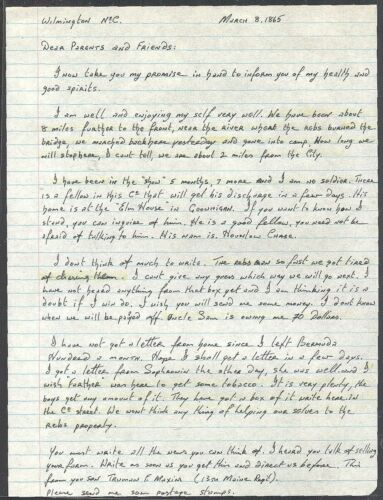 Wilmington N.C. March 8, 1865
Dear Parents and Friends:
I now take you my promise in hand to inform you of my health and
good spirits.
I am well and enjoying my self very well. We have been about
8 miles further to the front, near the river wheat the rebs burned the
bridge, we marched back here yesterday and gone into camp. How long we
will stop here, I cont tell, we are about 2 miles from the city.
I have been in the "show" 5 months, 7 more and I am no soldier. There
is a fellow in this Co that will get his discharge in a few days. His
home is at the "Elm House in . If you want to know how I
stand, you can inquire of him. He is a good fellow, you need not be
afraid of talking to him. His nam is. Chase.
I dont think of much to write. The rebs run so fast we got tired
of chasing them. I cont give any guess which way we will go next. I
have not heard anything from that box yet and I am thinking it is a
doubt if I win do. I wish you will send me some money. I dont know
when we will be payed off Uncle Sam is owing me 70 Dollars.
I have not got a letter from home since I left Bermuda
Hundered a month. Hope I shall get a letter in a few days.
I got a letter from the other day, she was well and I
wish further was here to get some tobacco. It is very plenty, the
boys get any amount of it. They have got a box of it write here in
the Co street. We wont think any thing of helping our selves to the
rebs property.
You must write all the news you can think of. I heard you talk of selling
your form. Write as soon as you get this and direct as before. This
from you son Truman P. Maxim (13th Maine Regt).
Please send me som postage stamps.